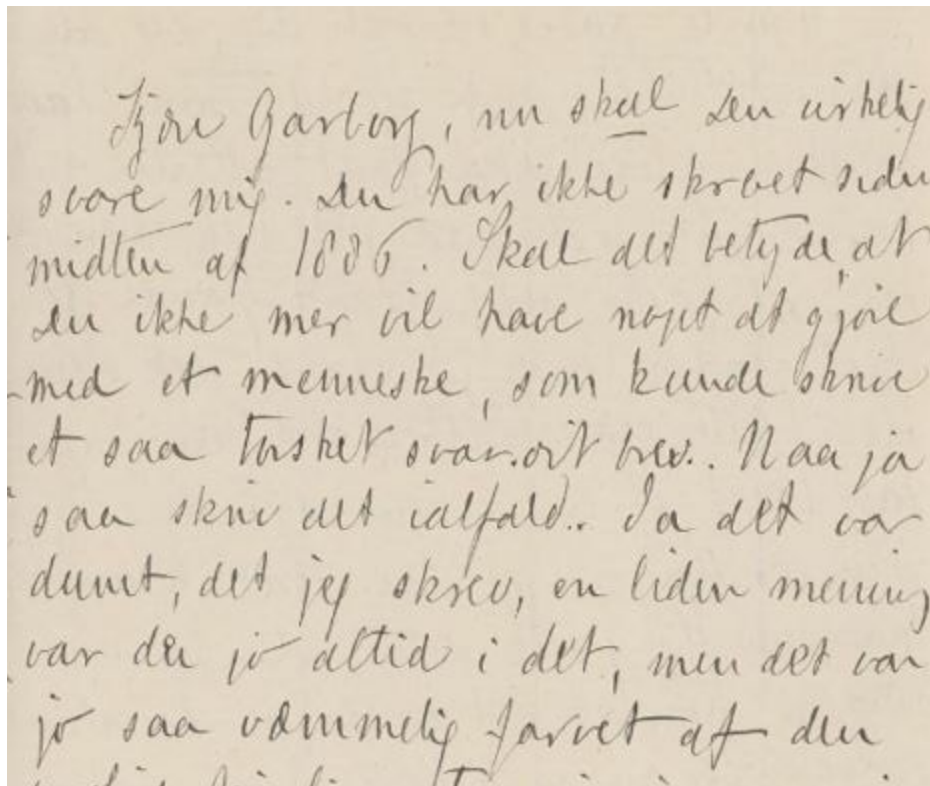 Kjære Garborg, nu skal De virkelig
svare mig. De har ikke skrevet siden
midten af 1886. Skal det betyde, at
De ikke mer vil have noget at gjøre
med et menneske, som kunde skrive
et saa tosket svar brev.. Naa ja
saa skriv det ialfald.. Ja det var
dumt, det jeg skrev, en liden mening
var der jo altid i det, men det var
jo saa væmmelig farvet af den